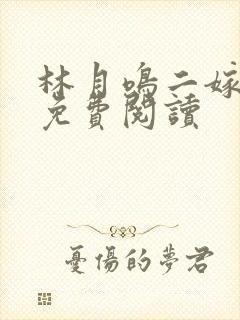 林月鳴二嫁
免費閱讀
憂傷的夢君